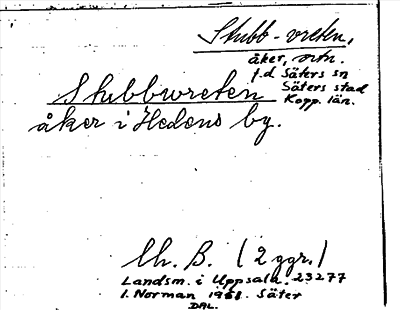 Stubb-vreten,
åker, ortn.
f.d Säters sn
Säters stad
Kopp. län.
Stubbvreten
åker i Hedens by.
Uh. B. (2 ggr.)
Landsm. i Uppsala. 23277
I. Norman 1958. Säter
DAL.